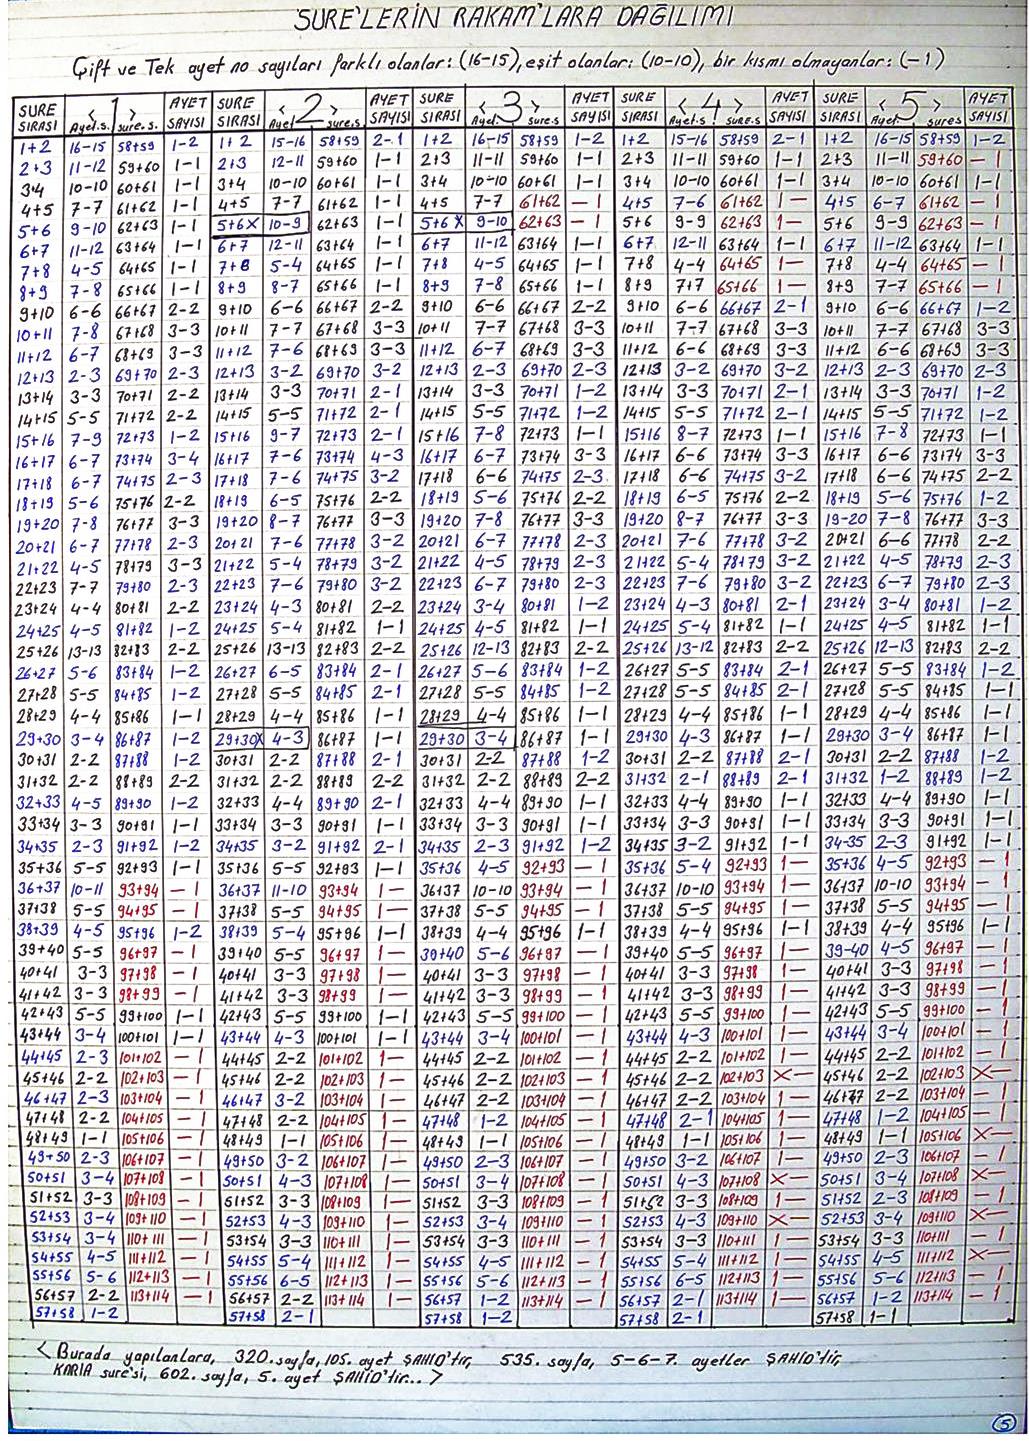 SURE'LERİN RAKAM'LARA DAĞILIMI
Çift ve Tek ayet no sayıları farklı olanlar: (16-15), eşit olanlar: (10-10), bir kısmı olmayanlar: (-1)
SURE SIRASI < 1 > Ayet.s. sure.s. AYET SAYISI SURE SIRASI < 2 > Ayet sure.s AYET SAYISI SURE SIRASI < 3 > Ayet.s. sure.s. AYET SAYISI SURE SIRASI < 4 > Ayet.s sure.s. AYET SAYISI SURE SIRASI < 5 > Ayet.s. sure.s AYET SAYISI
1+2 16-15 58+59 1-2 1+2 15-16 58+59 2-1 1+2 16-15 58+59 1-2 1+2 15-16 58+59 2-1 1+2 16-15 58+59 1-2
2+3 11-12 59+60 1-1 2+3 12-11 59+60 1-1 2+3 11-11 59+60 1-1 2+3 11-11 59+60 1-1 2+3 11-11 59+60 -1
3+4 10-10 60+61 1-1 3+4 10-10 60+61 1-1 3+4 10-10 60+61 1-1 3+4 10-10 60+61 1-1 3+4 10-10 60+61 1-1
4+5 7-7 61+62 1-1 4+5 7-7 61+62 1-1 4+5 7-7 61+62 -1 4+5 7-6 61+62 1- 4+5 6-7 61+62 -1
5+6 9-10 62+63 1-1 5+6X 10-9 62+63 1-1 5+6X 9-10 62+63 -1 5+6 9-9 62+63 1- 5+6 9-9 62+63 -1
6+7 11-12 63+64 1-1 6+7 12-11 63+64 1-1 6+7 11-12 63+64 1-1 6+7 12-11 63+64 1-1 6+7 11-12 63+64 1-1
7+8 4-5 64+65 1-1 7+8 5-4 64+65 1-1 7+8 4-5 64+65 1-1 7+8 4-4 64+65 1- 7+8 4-4 64+65 -1
8+9 7-8 65+66 1-1 8+9 8-7 65+66 1-1 8+9 7-8 65+66 1-1 8+9 7+7 65+66 1- 8+9 7-7 65+66 -1
9+10 6-6 66+67 2-2 9+10 6-6 66+67 2-2 9+10 6-6 66+67 2-2 9+10 6-6 66+67 2-1 9+10 6-6 66+67 1-2
10+11 7-8 67+68 3-3 10+11 7-7 67+68 3-3 10+11 7-7 67+68 3-3 10+11 7-7 67+68 3-3 10+11 7-7 67+68 3-3
11+12 6-7 68+69 3-3 11+12 7-6 68+69 3-3 11+12 6-7 68+69 3-3 11+12 6-6 68+69 3-3 11+12 6-6 68+69 3-3
12+13 2-3 69+70 2-3 12+13 3-2 69+70 3-2 12+13 2-3 69+70 2-3 12+13 3-2 69+70 3-2 12+13 2-3 69+70 2-3
13+14 3-3 70+71 2-2 13+14 3-3 70+71 2-1 13+14 3-3 70+71 1-2 13+14 3-3 70+71 2-1 13+14 3-3 70+71 1-2
14+15 5-5 71+72 2-2 14+15 5-5 71+72 2-1 14+15 5-5 71+72 1-2 14+15 5-5 71+72 2-1 14+15 5-5 71+72 1-2
15+16 7-9 72+73 1-2 15+16 9-7 72+73 2-1 15+16 7-8 72+73 1-1 15+16 8-7 72+73 1-1 15+16 7-8 72+73 1-1
16+17 6-7 73+74 3-4 16+17 7-6 73+74 4-3 16+17 6-7 73+74 3-3 16+17 6-6 73+74 3-3 16+17 6-6 73+74 3-3
17+18 6-7 74+75 2-3 17+18 7-6 74+75 3-2 17+18 6-6 74+75 2-3 17+18 6-6 74+75 3-2 17+18 6-6 74+75 2-2
18+19 5-6 75+76 2-2 18+19 6-5 75+76 2-2 18+19 5-6 75+76 2-2 18+19 6-5 75+76 2-2 18+19 5-6 75+76 1-2
19+20 7-8 76+77 3-3 19+20 8-7 76+77 3-3 19+20 7-8 76+77 3-3 19+20 8-7 76+77 3-3 19-20 7-8 76+77 3-3
20+21 6-7 77+78 2-3 20+21 7-6 77+78 3-2 20+21 6-7 77+78 2-3 20+21 7-6 77+78 3-2 20+21 6-6 77+78 2-2
21+22 4-5 78+79 3-3 21+22 5-4 78+79 3-2 21+22 4-5 78+79 2-3 21+22 5-4 78+79 3-2 21+22 4-5 78+79 2-3
22+23 7-7 79+80 2-3 22+23 7-6 79+80 3-2 22+23 6-7 79+80 2-3 22+23 7-6 79+80 3-2 22+23 6-7 79+80 2-3
23+24 4-4 80+81 2-2 23+24 4-3 80+81 2-2 23+24 3-4 80+81 1-2 23+24 4-3 80+81 2-1 23+24 3-4 80+81 1-2
24+25 4-5 81+82 1-2 24+25 5-4 81+82 1-1 24+25 4-5 81+82 1-1 24+25 5-4 81+82 1-1 24+25 4-5 81+82 1-1
25+26 13-13 82+83 2-2 25+26 13-13 82+83 2-2 25+26 12-13 82+83 2-2 25+26 13-12 82+83 2-2 25+26 12-13 82+83 2-2
26+27 5-6 83+84 1-2 26+27 6-5 83+84 2-1 26+27 5-6 83+84 1-2 26+27 5-5 83+84 2-1 26+27 5-5 83+84 1-2
27+28 5-5 84+85 1-2 27+28 5-5 84+85 2-1 27+28 5-5 84+85 1-2 27+28 5-5 84+85 2-1 27+28 5-5 84+85 1-1
28+29 4-4 85+86 1-1 28+29 4-4 85+86 1-1 28+29 4-4 85+86 1-1 28+29 4-4 85+86 1-1 28+29 4-4 85+86 1-1
29+30 3-4 86+87 1-2 29+30X 4-3 86+87 1-1 29+30 3-4 86+87 1-1 29+30 4-3 86+87 1-1 29+30 3-4 86+87 1-1
30+31 2-2 87+88 1-2 30+31 2-2 87+88 2-1 30+31 2-2 87+88 1-2 30+31 2-2 87+88 2-1 30+31 2-2 87+88 1-2
31+32 2-2 88+89 2-2 31+32 2-2 88+89 2-2 31+32 2-2 88+89 2-2 31+32 2-1 88+89 2-1 31+32 1-2 88+89 1-2
32+33 4-5 89+90 1-2 32+33 4-4 89+90 2-1 32+33 4-4 89+90 1-1 32+33 4-4 89+90 1-1 32+33 4-4 89+90 1-1
33+34 3-3 90+91 1-1 33+34 3-3 90+91 1-1 33+34 3-3 90+91 1-1 33+34 3-3 90+91 1-1 33+34 3-3 90+91 1-1
34+35 2-3 91+92 1-2 34+35 3-2 91+92 2-1 34+35 2-3 91+92 1-2 34+35 3-2 91+92 1-1 34-35 2-3 91+92 1-1
35+36 5-5 92+93 1-1 35+36 5-5 92+93 1-1 35+36 4-5 92+93 -1 35+36 5-4 92+93 1- 35+36 4-5 92+93 -1
36+37 10-11 93+94 -1 36+37 11-10 93+94 1- 36+37 10-10 93+94 -1 36+37 10-10 93+94 1- 36+37 10-10 93+94 -1
37+38 5-5 94+95 -1 37+38 5-5 94+95 1- 37+38 5-5 94+95 -1 37+38 5-5 94+95 1- 37+38 5-5 94+95 -1
38+39 4-5 95+96 1-2 38+39 5-4 95+96 1-1 38+39 4-4 95+96 1-1 38+39 4-4 95+96 1-1 38+39 4-4 95+96 1-1
39+40 5-5 96+97 -1 39+40 5-5 96+97 1- 39+40 5-6 96+97 -1 39+40 5-5 96+97 1- 39-40 4-5 96+97 -1
40+41 3-3 97+98 -1 40+41 3-3 97+98 1- 40+41 3-3 97+98 -1 40+41 3-3 97+98 1- 40+41 3-3 97+98 -1
41+42 3-3 98+99 -1 41+42 3-3 98+99 1- 41+42 3-3 98+99 -1 41+42 3-3 98+99 1- 41+42 3-3 98+99 -1
42+43 5-5 99+100 1-1 42+43 5-5 99+100 1-1 42+43 5-5 99+100 -1 42+43 5-5 99+100 1- 42+43 5-5 99+100 -1
43+44 3-4 100+101 1-1 43+44 4-3 100+101 1-1 43+44 3-4 100+101 -1 43+44 4-3 100+101 1- 43+44 3-4 100+101 -1
44+45 2-3 101+102 -1 44+45 2-2 101+102 1- 44+45 2-2 101+102 -1 44+45 2-2 101+102 1- 44+45 2-2 101+102 -1
45+46 2-2 102+103 -1 45+46 2-2 102+103 1- 45+46 2-2 102+103 -1 45+46 2-2 102+103 X- 45+46 2-2 102+103 X-
46+47 2-3 103+104 -1 46+47 3-2 103+104 1- 46+47 2-2 103+104 -1 46+47 2-2 103+104 1- 46+47 2-2 103+104 -1
47+48 2-2 104+105 -1 47+48 2-2 104+105 1- 47+48 1-2 104+105 -1 47+48 2-1 104+105 1- 47+48 1-2 104+105 -1
48+49 1-1 105+106 -1 48+49 1-1 105+106 1- 48+49 1-1 105+106 -1 48+49 1-1 105+106 1- 48+49 1-1 105+106 X-
49+50 2-3 106+107 -1 49+50 3-2 106+107 1- 49+50 2-3 106+107 -1 49+50 3-2 106+107 1- 49+50 2-3 106+107 -1
50+51 3-4 107+108 -1 50+51 4-3 107+108 1- 50+51 3-4 107+108 -1 50+51 4-3 107+108 X- 50+51 3-4 107+108 X-
51+52 3-3 108+109 -1 51+52 3-3 108+109 1- 51+52 3-3 108+109 -1 51+52 3-3 108+109 1- 51+52 2-3 108+109 -1
52+53 3-4 109+110 -1 52+53 4-3 109+110 1- 52+53 3-4 109+110 -1 52+53 4-3 109+110 X- 52+53 3-4 109+110 X-
53+54 3-4 110+111 -1 53+54 3-3 110+111 1- 53+54 3-3 110+111 -1 53+54 3-3 110+111 1- 53+54 3-3 110+111 -1
54+55 4-5 111+112 -1 54+55 5-4 111+112 1- 54+55 4-5 111+112 -1 54+55 5-4 111+112 1- 54+55 4-5 111+112 X-
55+56 5-6 112+113 -1 55+56 6-5 112+113 1- 55+56 5-6 112+113 -1 55+56 6-5 112+113 1- 55+56 5-6 112+113 -1
56+57 2-2 113+114 -1 56+57 2-2 113+114 1- 56+57 1-2 113+114 -1 56+57 2-1 113+114 1- 56+57 1-2 113+114 -1
57+58 1-2 57+58 2-1 57+58 1-2 57+58 2-1 57+58 1-1
< Burada yapılanlara, 320. sayfa, 105. ayet ŞAHİD'tir, 535. sayfa, 5-6-7. ayetler ŞAHİD'tir,
KARİA sure'si, 602. sayfa, 5. ayet ŞAHİD'tir... >
5